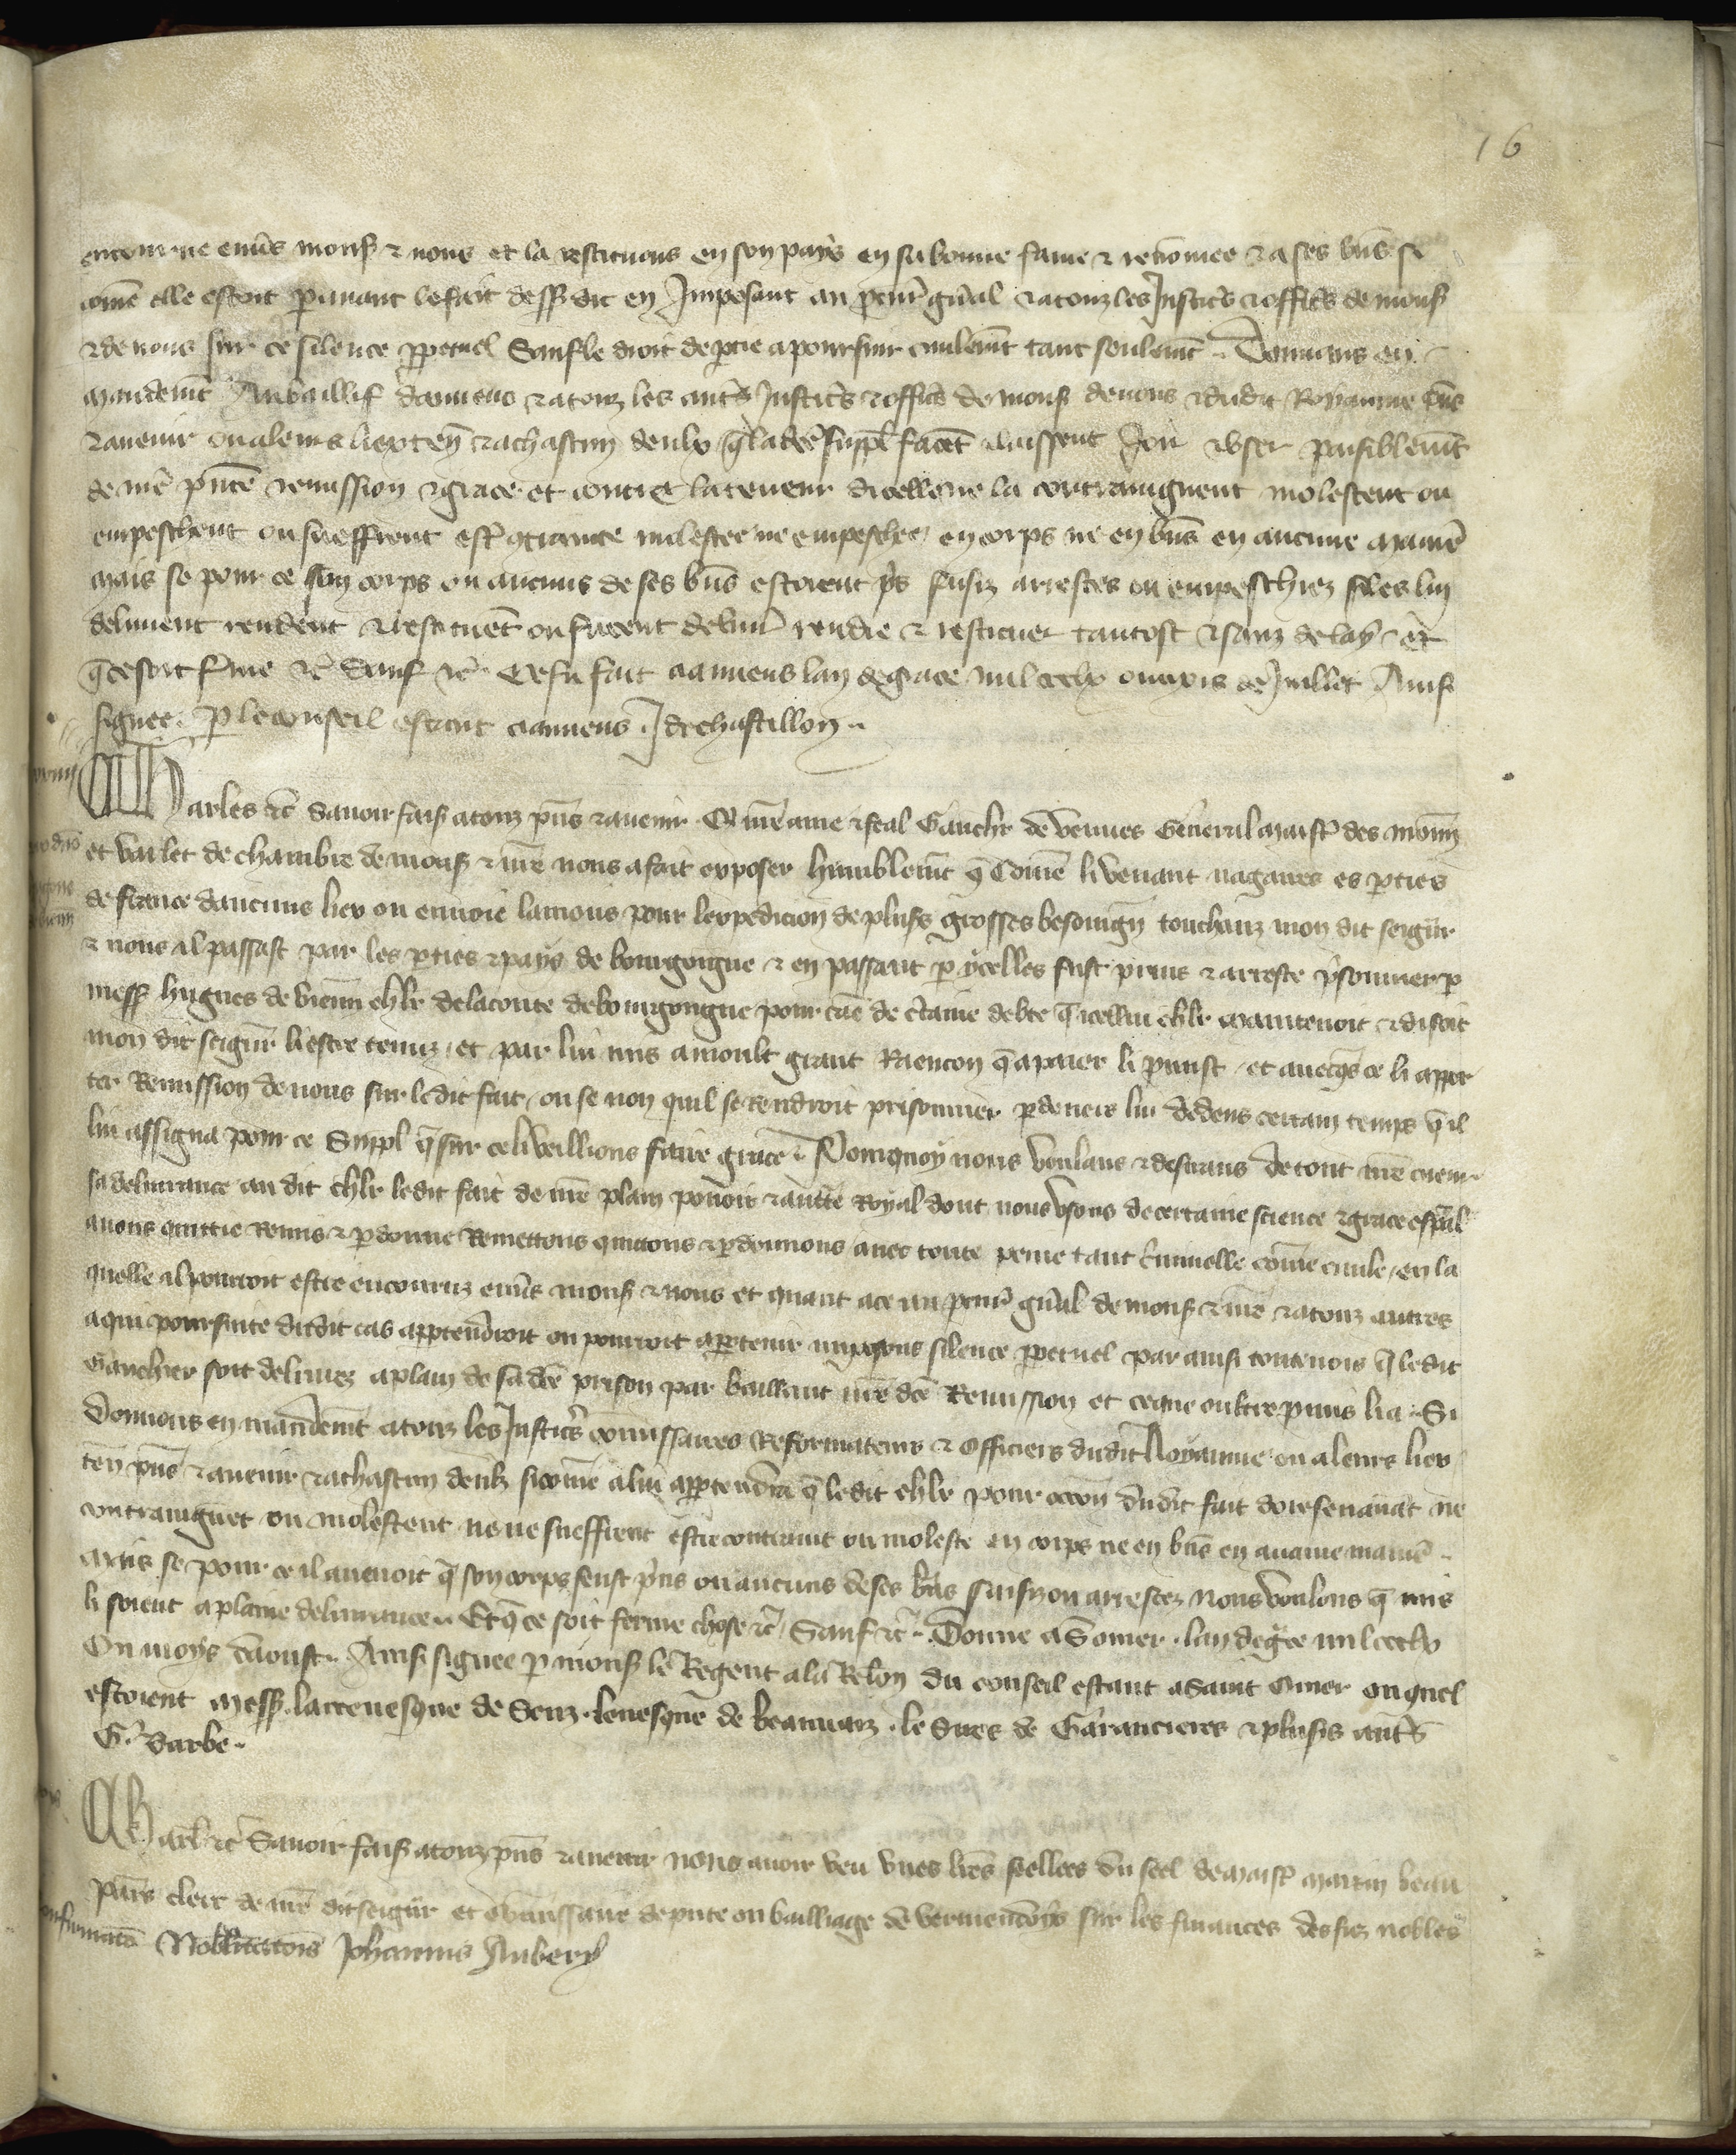 16
encourue enũs monß ⁊ nous et la restituons en son pays en sa bonne fame ⁊ renõmee ⁊ a ses bñs si
cõme elle estoit p auant le fait dessß dit en Imposant au pcur gñal ⁊ a touz les Justicͥs ⁊ officͥs de monß
⁊ de nous sur ce silence ppetuel Sauf le droit de ptie a poursuir ciuilemt tant seulemt. Donnans en
mandemt Au baillif damiens ⁊ a touz les autͥs Justicͥs ⁊ officͥs de monß de nous ⁊ dudit Royaume
⁊ auenir ou a leurs liex teñ ⁊ a chascun deulx q̃ la dcẽ suppl facẽt ⁊ laissent Joir ⁊ vser paisiblemt
de nrẽ pñte remission ⁊ grace et contre la teneur dicelle ne la contraingnent molestent ou
empeschent ou sueffrent estͥ ꝯtrainte molestee ne empeschee en corps ne en bñs en aucune maniẽ
Mais se pour ce son corps ou aucuns de ses bñs estoient pͥs saisiz arrestes ou empeschiez si les lui
deliurent rendent ⁊ restituẽt ou facent deliurͥ rendre ⁊ restituer tantost ⁊ sanz delay ⁊ et
q̃ ce soit fͥme ⁊cͥ Sauf ⁊cͥ Ce fu fait a amiens lan de grace mil ccclx ou mois de Juillet Ainsi
signee. p le conseil estant a amiens. J de chastillon..
Charles ⁊cͥ Sauoir faiß a touz pñs ⁊ auenir. Q̃ nrẽ ame ⁊ feal Gauchr de vennes General maistͥ des monñ
et varlet de chambre de monß ⁊ nrẽ nous a fait exposer humblemt q̃ Cõme li venant nagaires es pties
de france daucuns liex ou enuoie lauions pour lexpedicion de plusß grosses besoingñ touchanz mon dit seigñr
⁊ nous il passast par les pties ⁊ pays de bourgongne ⁊ en passant p ycelles fust prins ⁊ arreste pͥsonnier p
messß hugues de vienñ chlr de la conte de bourgongne pour cãe de ctaine debte q̃ icellui chlr maintenoit ⁊ disoit
mon dit seigñr li estre tenuz. et par lui mis a moult grant Raencon q̃ a paier li pmist. et auecqͥs ce li appor
ter Remission de nous sur ledit fait. ou se non quil se rendroit prisonnier p deuers lui dedens certain temps q̃ il
lui assigna pour ce Suppl q̃ sur ce li veillions faire grace.. Pourquoy nous voulans ⁊ desirans de tout nrẽ cuer
sa deliurance au dit chlr ledit fait de nrẽ plain pouoir ⁊ auttẽ Royal dont nous vsons de certaine science ⁊ grace espãl
auons quittie Remis ⁊ pdonne Remettons quittons ⁊ pdonnons auec toute peine tant cͥminelle cõme ciuile. en la
quelle il pourroit estre encouruz enũs monß ⁊ nous et quant a ce au pcur gñal de monß ⁊ nrẽ ⁊ a touz autres
a qui poursuite dudit cas apptendroit ou pourroit aptenir imposons silence ppetuel par ainsi toutevois q̃ ledit
Gauchier soit deliurez a plain de sa dcẽ prison par baillant nrẽ dcẽ Remission et ce que oultre pmis li a.. Si
Donnons en mandemt a touz les Justicͥs cõmissaires Reformateurs ⁊ Officiers dudit Royaume ou a leurs liex
teñ pñs ⁊ auenir ⁊ a chascun deulx si cõme a lui apptendra q̃ ledit chlr pour occoñ dudit fait doresenauãt ne
contraingnẽt ou molestent ne ne sueffrent estre contraint ou moleste en corps ne en bñs en aucune maniẽ..
Mais se pour ce il auenoit q̃ son corps feust pͥns ou aucuns de ses bñs saisiz ou arrestez nous voulons q̃ mis
li soient a plaine deliurance.. Et q̃ ce soit ferme chose ⁊cͥ. Sauf ⁊cͥ.. Donne a S omer. lan de gͣce mil ccclx
Ou moys daoust.. Ainsi signee p monß le Regent a la Relon du conseil estant a Saint Omer ouquel
estoient messß. larceuesque de Senz. leuesque de beauuaiz. le sires de Garancieres ⁊ plusͥs autͥs
G. Barbe..
Charl ⁊cͥ Sauoir faiß a touz pñs ⁊ auenir nous auoir veu vnes lrẽs seellees du seel de maistͥ martin beau
pars clerc de nrẽ dit seigñr et cõmissaire depute ou bailliage de vermendoys sur les finances des fiez nobles
Nobilitatois Johannis Aubery